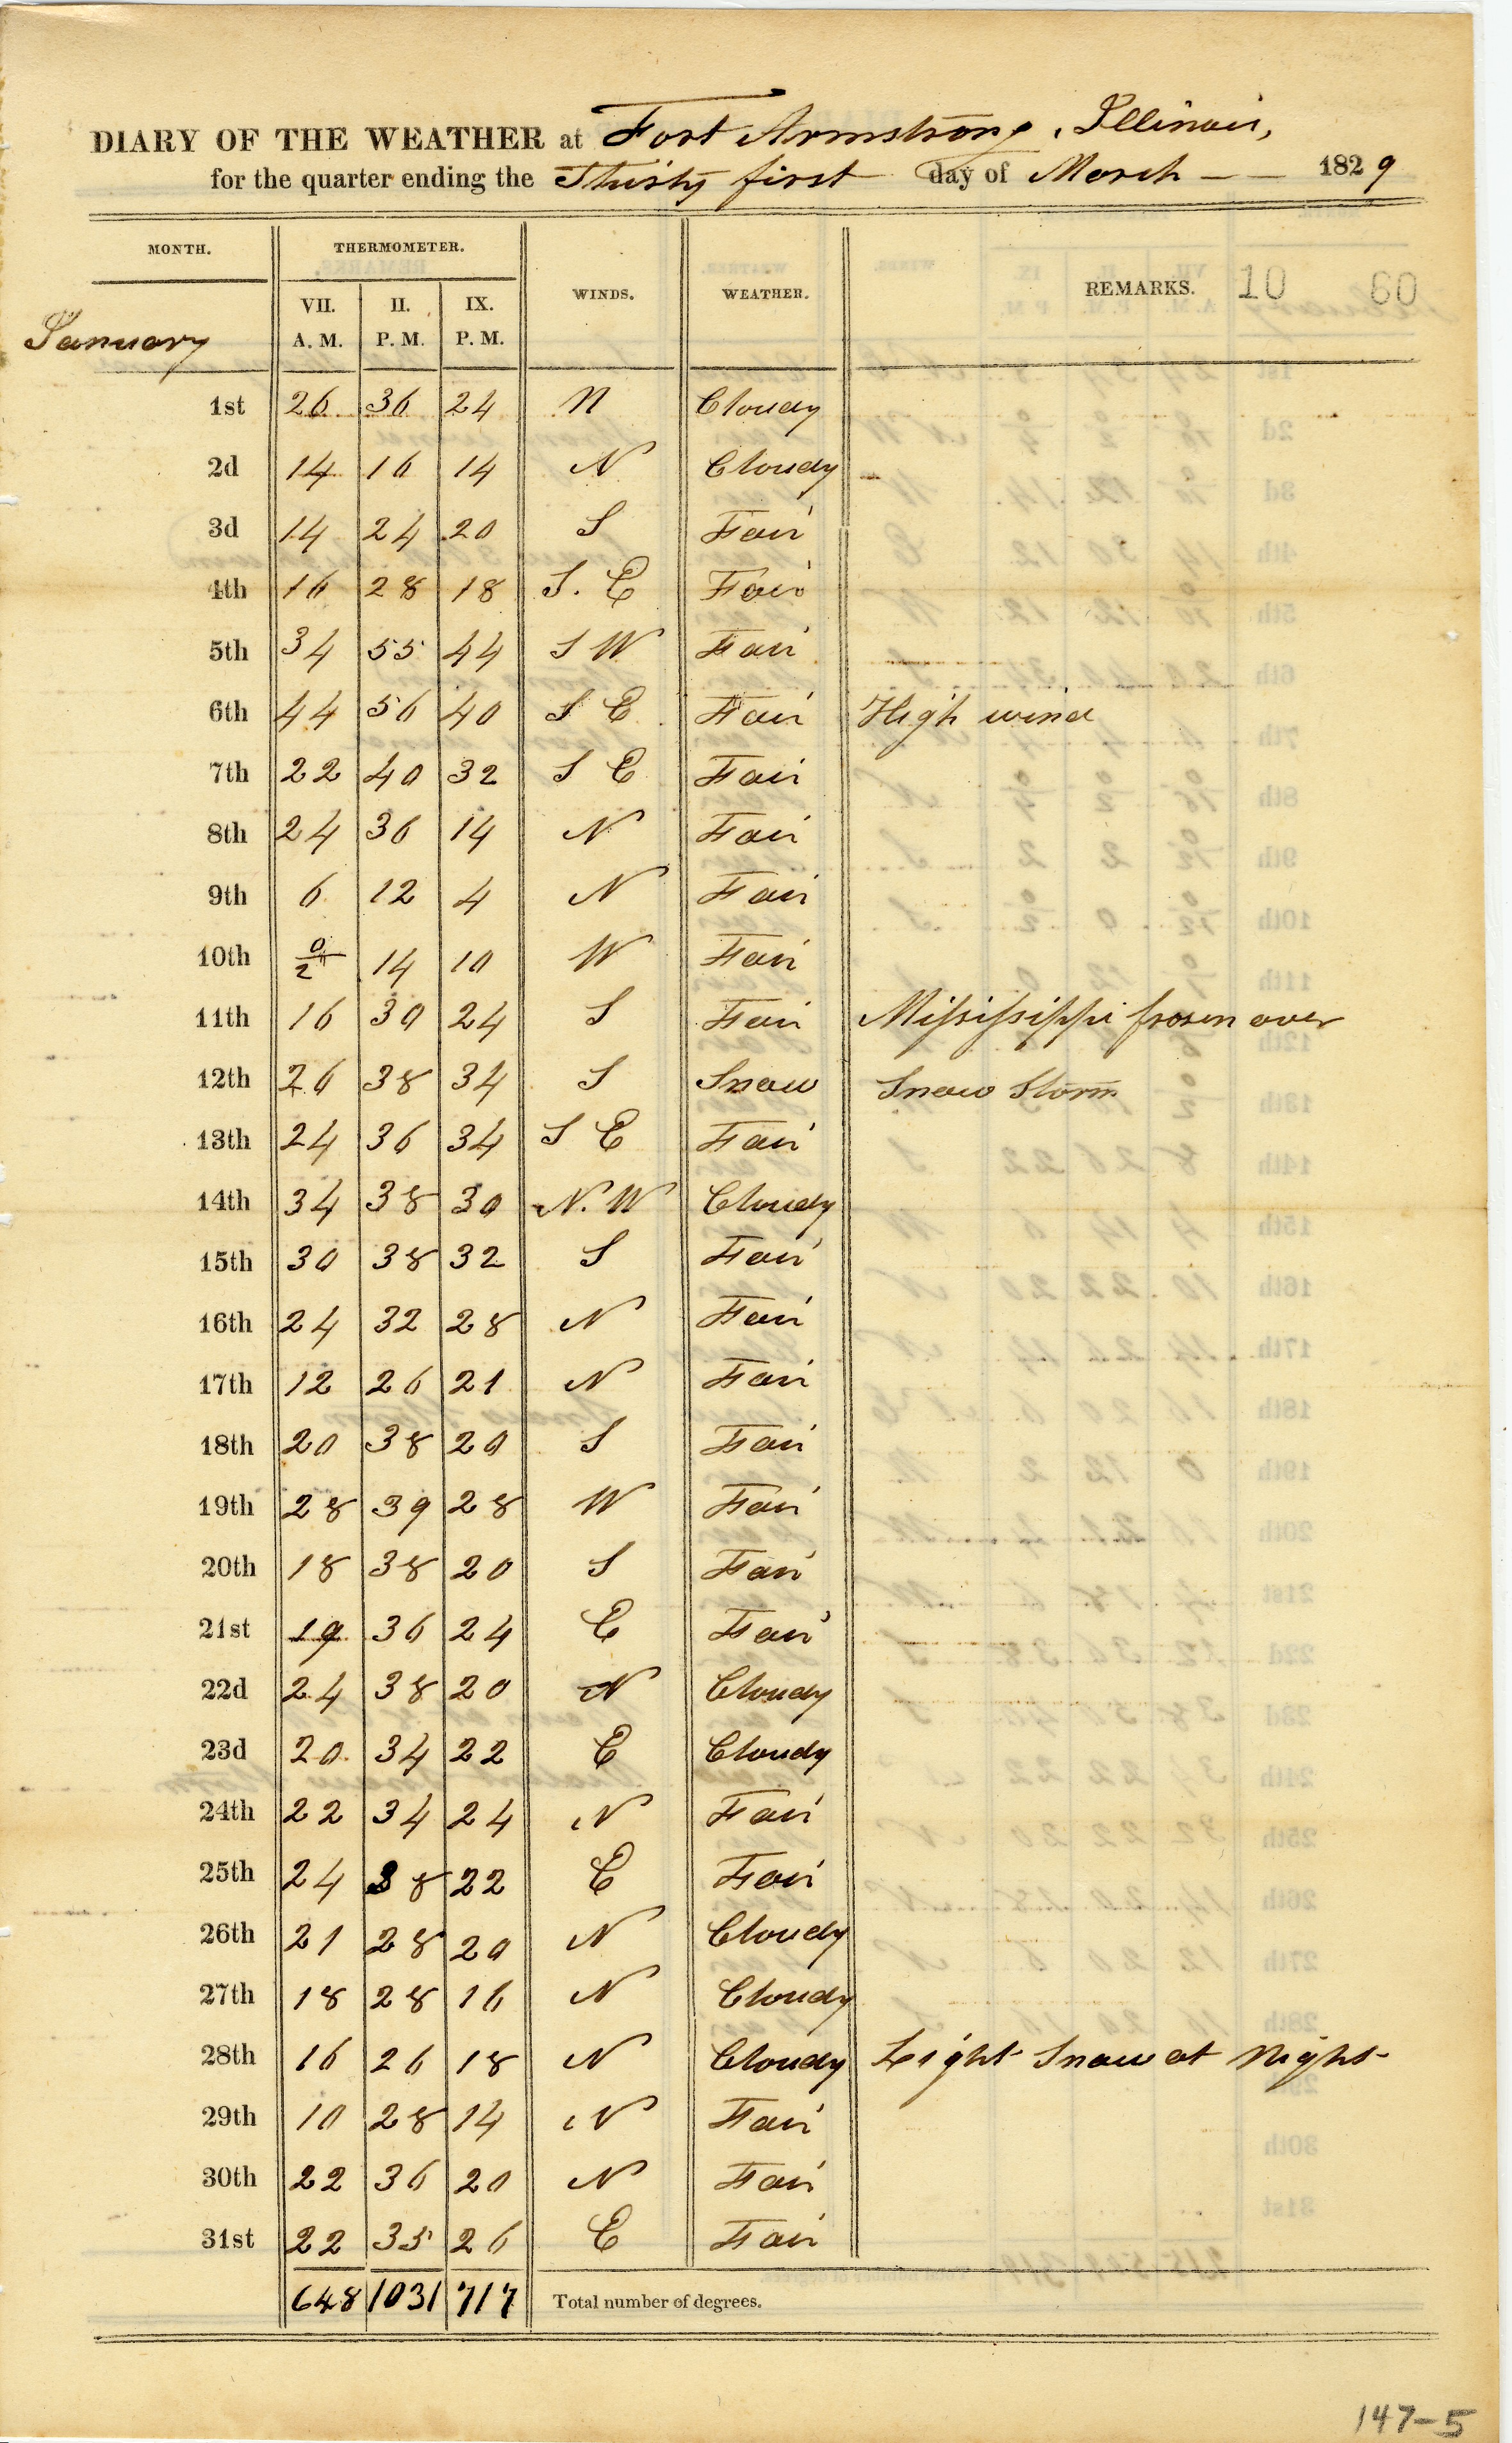 DIARY OF THE WEATHER at Fort Armstrong, Illinois,
for the quarter ending the Thirty first day of March — — 1829
MONTH. THERMOMETER. WINDS. WEATHER. REMARKS. 10 60
VII. II. IX.
A. M. P. M. P. M.
January
1st 26 36 24 N Cloudy
2d 14 16 14 N Cloudy
3d 14 24 20 S Fair
4th 16 28 18 S. E Fair
5th 34 55 44 S W Fair
6th 44 56 40 S E Fair High wind
7th 22 40 32 S E Fair
8th 24 36 14 N Fair
9th 6 12 4 N Fair
10th 0/2 14 10 W Fair
11th 16 30 24 S Fair Mississippi frozen over
12th 26 38 34 S Snow Snow Storm
13th 24 36 34 S E Fair
14th 34 38 30 N. W Cloudy
15th 30 38 32 S Fair
16th 24 32 28 N Fair
17th 12 26 21 N Fair
18th 20 38 20 S Fair
19th 28 39 28 W Fair
20th 18 38 20 S Fair
21st 19 36 24 E Fair
22d 24 38 20 N Cloudy
23d 20 34 22 E Cloudy
24th 22 34 24 N Fair
25th 24 38 22 E Fair
26th 21 28 20 N Cloudy
27th 18 28 16 N Cloudy
28th 16 26 18 N Cloudy Light Snow at Night
29th 10 28 14 N Fair
30th 22 36 20 N Fair
31st 22 35 26 E Fair
648 1031 717 Total number of degrees.
147-5